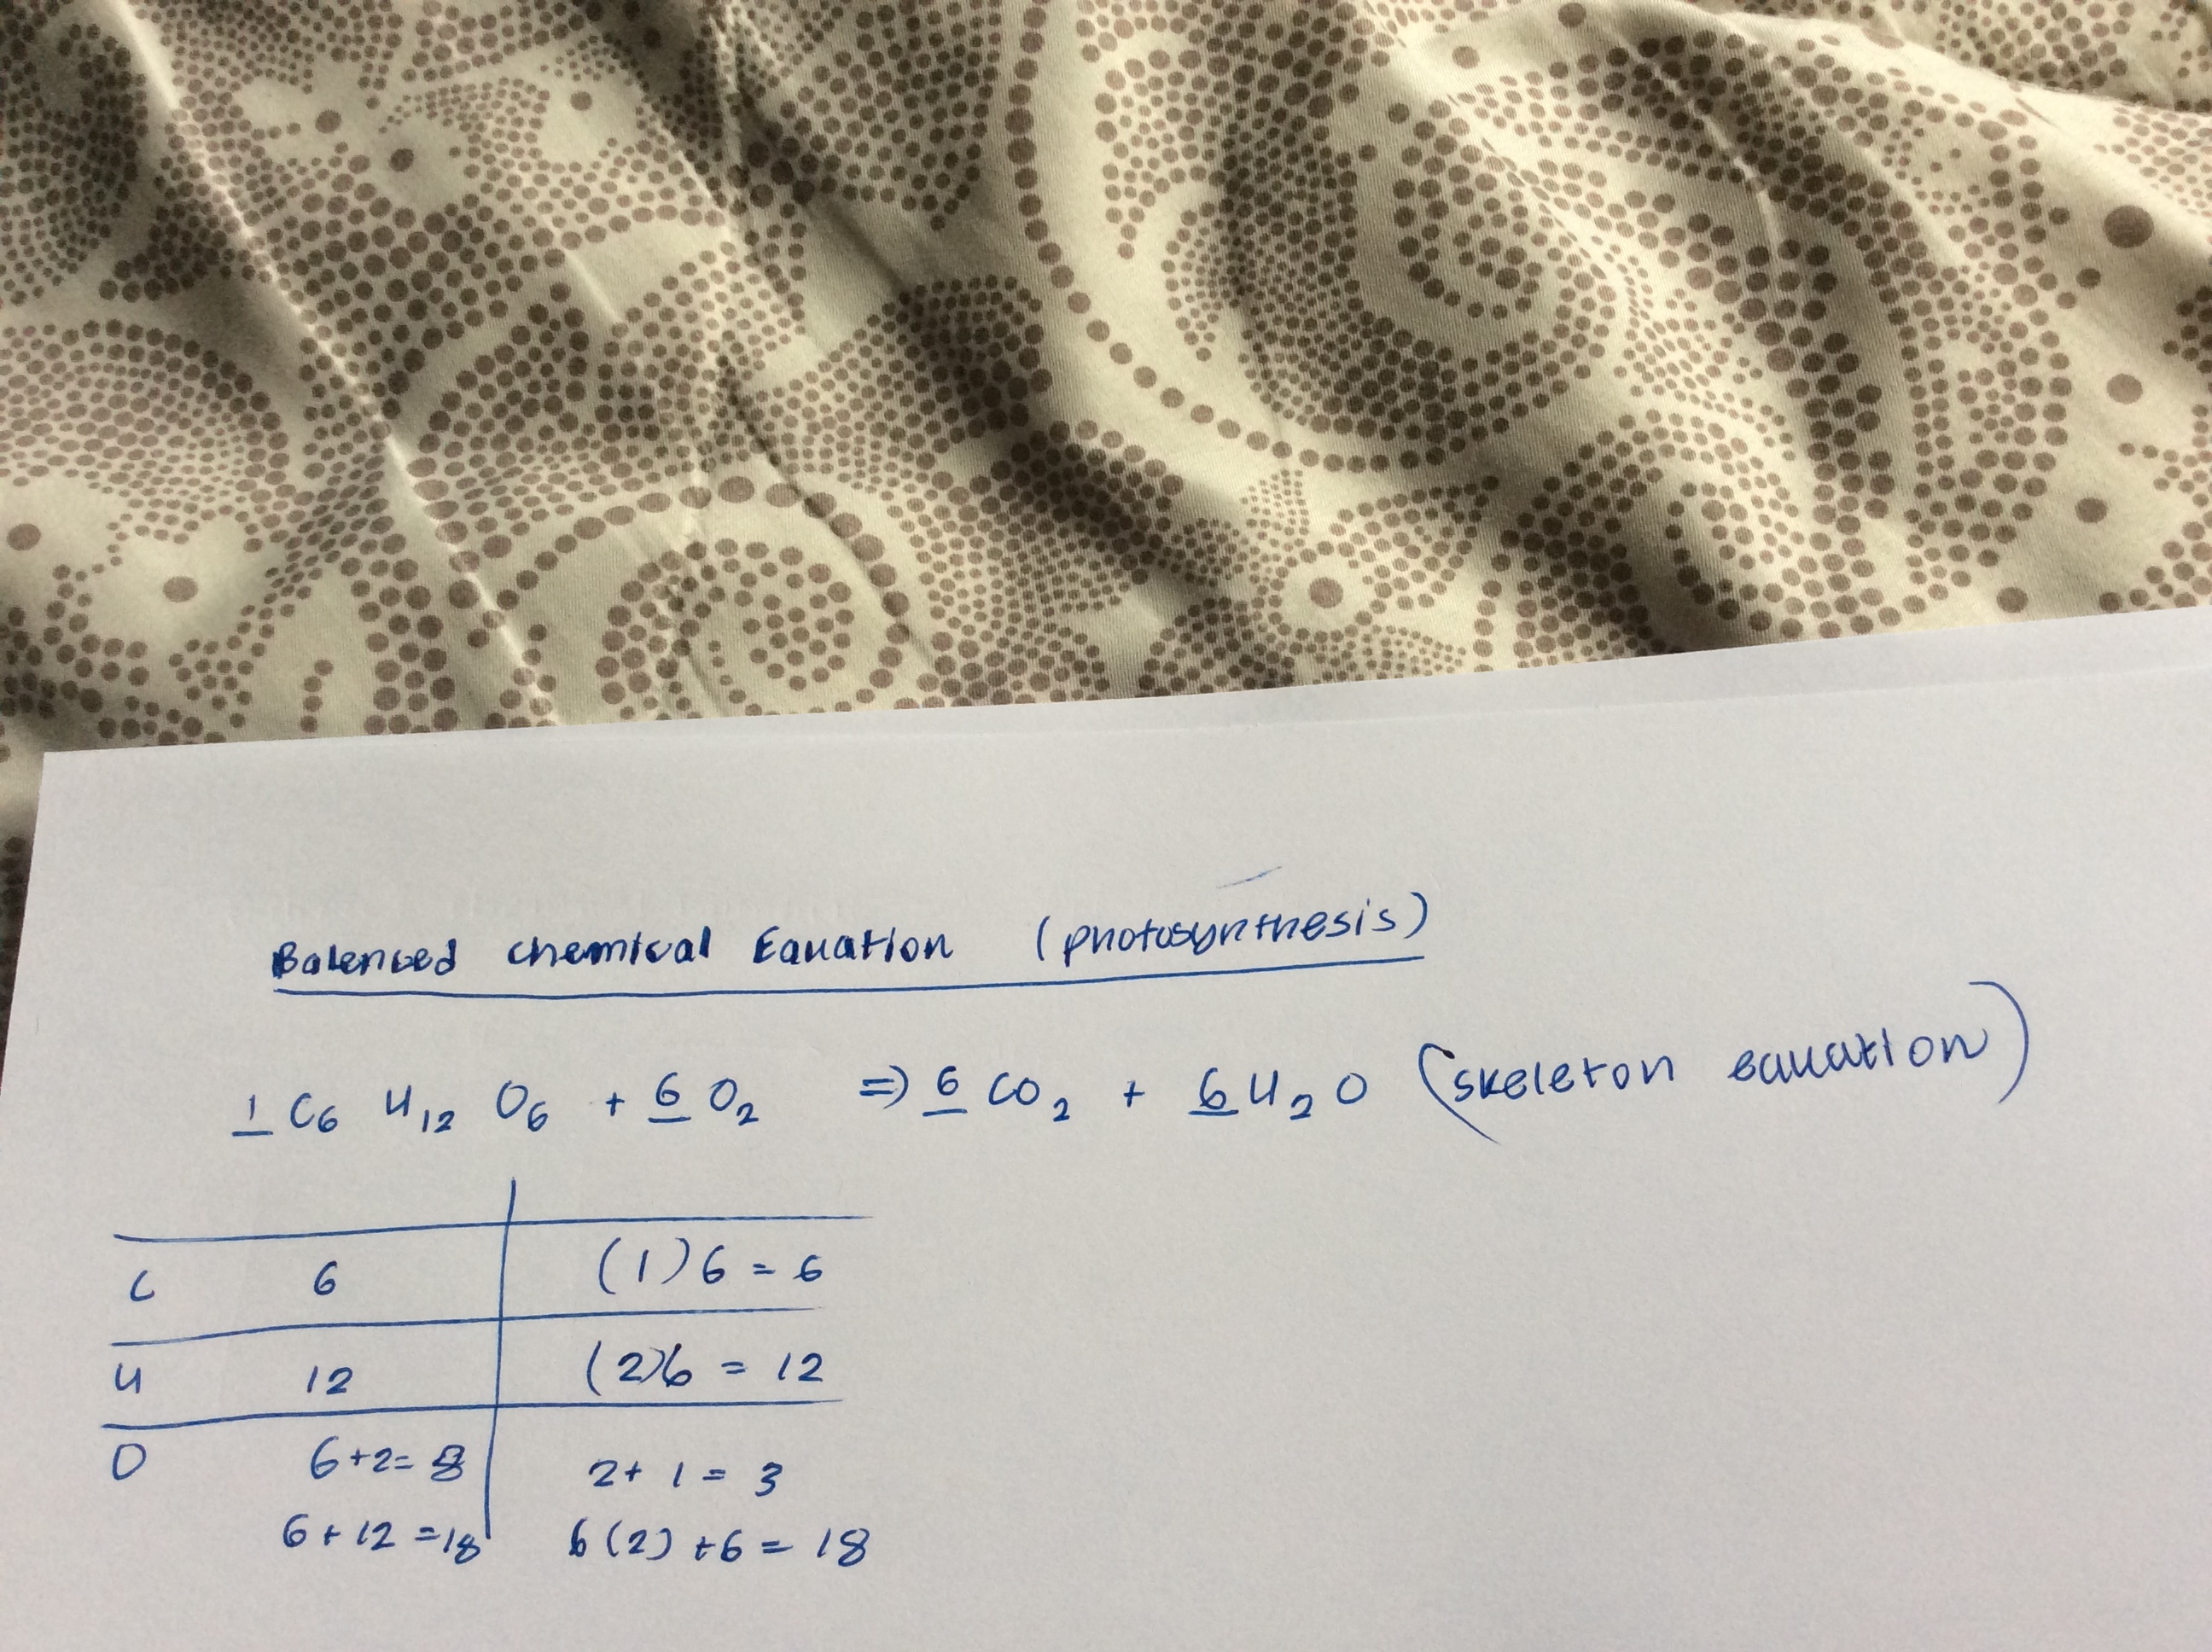 Balenced chemical Equation (photosynthesis)
1 C6 H12 O6 + 6 O2 => 6 CO2 + 6 H2O (skeleton equation)
C 6 (1)6 = 6
H 12 (2)6 = 12
O 6+2= 8 2+ 1 = 3
6 + 12 =18 6(2) +6 = 18